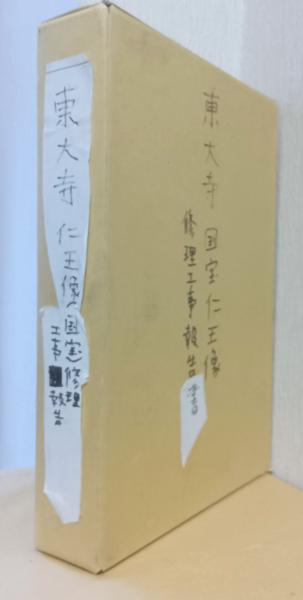 東大寺仁王像(国宝)修理
工事報告
東大寺国宝仁王像
修理工事報告書